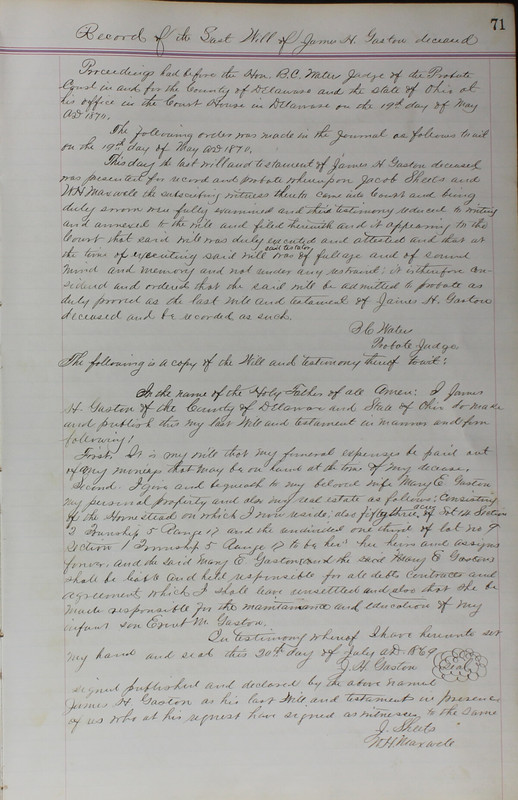 71
Record of the Last Will of James H. Gaston deceased
Proceedings had before the Hon. B.C. Waters Judge of the Probate
Court in and for the County of Delaware and the State of Ohio at
his office in the Court House in Delaware on the 19th day of May
AD 1870.
The following order was made in the Journal as follows to wit
on the 19th day of May AD 1870.
This day the last will and testament of James H Gaston deceased
was presented for record and probate whereupon Jacob Sheets and
W.H. Maxwell the subscribing witness thereto came into Court and being
duly sworn were fully examined and their testimony reduced to writing
and annexed to the will and filed therewith and it appearing to the
Court that said will was duly executed and attested and that at
the time of executing said will said testator was of full age and of sound
mind and memory and not under any restraint; it is therefore con-
sidered and ordered that the said will be admitted to probate as
duly proved as the last Will and testament of James H. Gaston
deceased and be recorded as such.
B C Waters
Probate Judge
The following is a copy of the Will and testimony thereof to wit:
In the name of the Holy Father of all Amen: I James
H. Gaston of the County of Delaware and State of Ohio do make
and publish this my last Will and testament in manner and form
following!
First. It is my will that my funeral expenses be paid out
of any moneys that may be on hand at the time of my decease.
Second. I give and bequeath to my beloved wife Mary E. Gaston
my personal property and also my real estate as follows: Consisting
of the Homestead on which I now reside; also fifty three acres of Lot 14 Section
2 Township 5 Range 17 and the undivided one third of lot no 9
Section 1 Township 5 Range 17 to be hers her heirs and assigns
forever, and the said Mary E Gaston and the said Mary E Gaston
shall be liable and held responsible for all debts contracts and
agreements which I shall leave unsettled and also that she be
made responsible for the maintainance and education of my
infant son Ernst M. Gaston.
In testimony whereof I have hereunto set
my hand and seal this 20th day of July AD. 1869
J. H Gaston Seal
signed published and declared by the above named
James H. Gaston as his last Will and testament in presence
of us who at his request have signed as witnesses to the same
J. Sheets
W.H. Maxwell